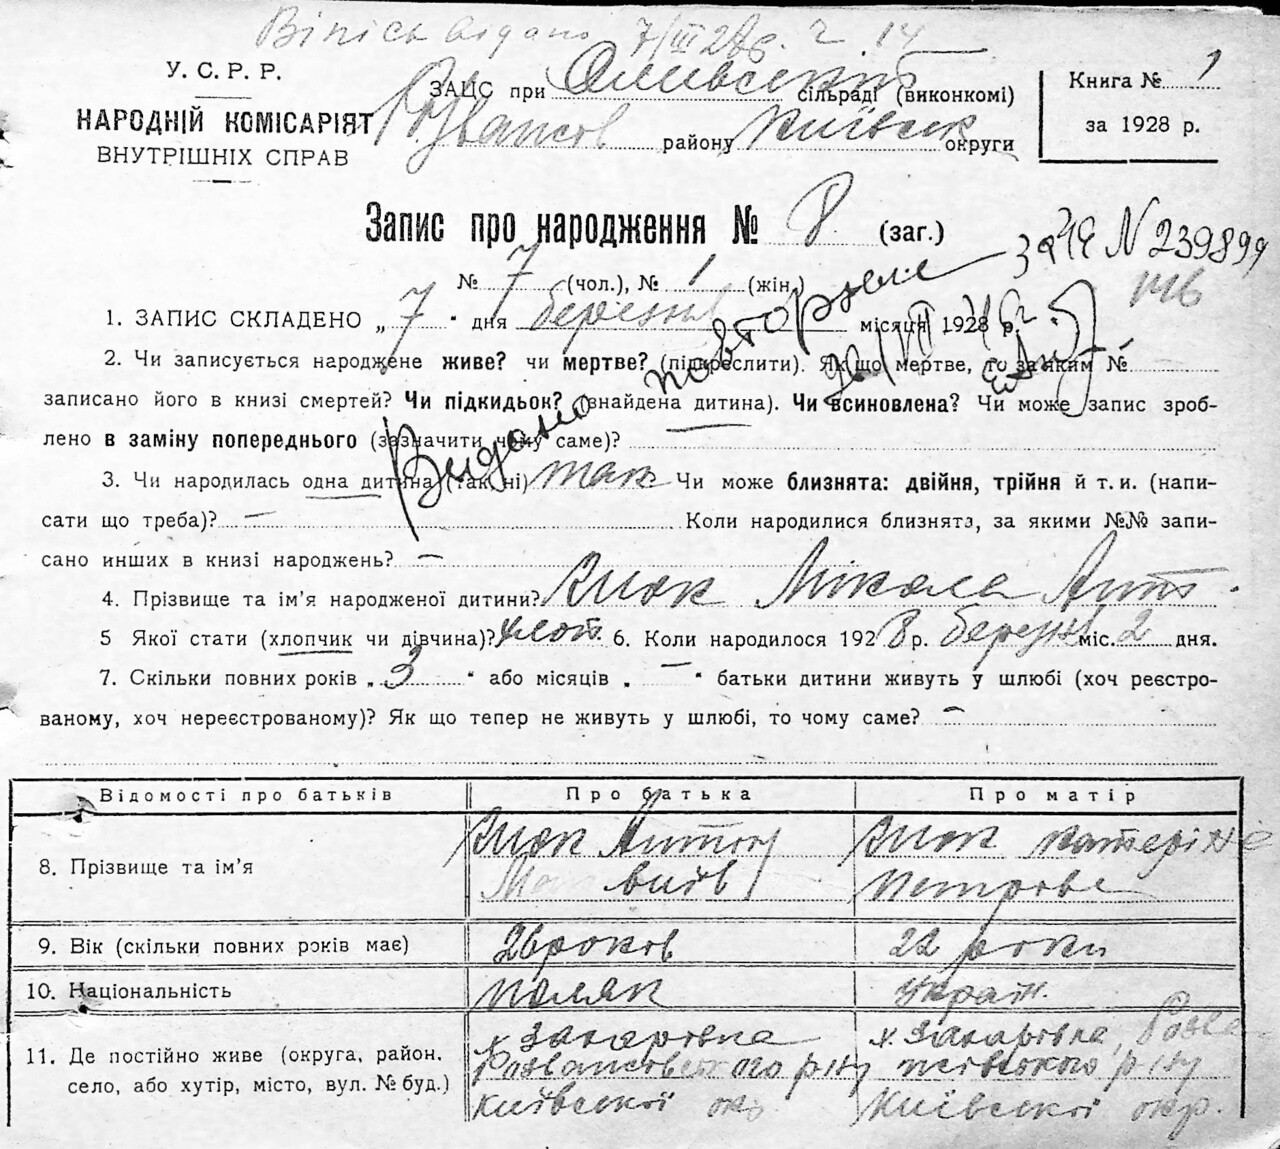 Віпісь видано 7/III 28 р. ч. 14
У. С. Р. Р.
НАРОДНІЙ КОМІСАРІЯТ
ВНУТРІШНІХ СПРАВ
ЗАЦС при сільраді (виконкомі)
району Київськ округи
Книга № 1
за 1928 р.
Запис про народження № 8 (заг.)
№ 7 (чол.), № 1 (жін.)
Видано повторне за № 239899
146
1. ЗАПИС СКЛАДЕНО „ 7 " дня березня місяця 1928 р.
2. Чи записується народжене живе? чи мертве? (підкреслити). Як що мертве, то за яким №
записано його в книзі смертей? Чи підкидьок? (знайдена дитина). Чи всиновлена? Чи може запис зроб-
лено в заміну попереднього (зазначити чому саме)?
3. Чи народилась одна дитина (так, ні) так Чи може близнята: двійня, трійня й т. и. (напи-
сати що треба)? — Коли народилися близнята, за якими №№ запи-
сано инших в книзі народжень? —
4. Прізвище та ім'я народженої дитини? Микола Ант.
5 Якої стати (хлопчик чи дівчина)? хлоп. 6. Коли народилося 1928 р. березня міс. 2 дня.
7. Скільки повних років „ 3 " або місяців „ — " батьки дитини живуть у шлюбі (хоч реєстро-
ваному, хоч нереєстрованому)? Як що тепер не живуть у шлюбі, то чому саме? —
Відомості про батьків Про батька Про матір
8. Прізвище та ім'я Антон Катеріна
Петрова
9. Вік (скільки повних років має) 26 років 22 роки
10. Національність поляк україн.
11. Де постійно живе (округа, район. х. Захарівка х. Захарівка, Розва
село, або хутір, місто, вул. № буд.) Розважівського р-ну жівського р-ну
Київської окр. Київської окр.